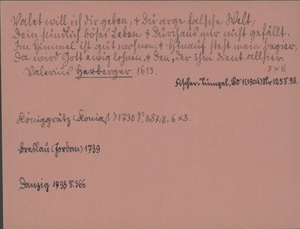 Valet will ich dir geben, + du arge falsche Welt,
Dein sündlich böses Leben + durchaus mir nicht gefällt.
Im Himmel ist gut wohnen, + hinauf steht mein Begier,
Da wird Gott ewig lohnen, + dem, der ihm dient allhier.
Valerius Herberger 1613. 3×8
Fischer-Tümpel, Bd 1 (1904) Nr 125 S. 98.
Königgrätz (Koniaš) 1730 S. 887/8, 6×8.
Breslau (Korban) 1739
Danzig S. 366